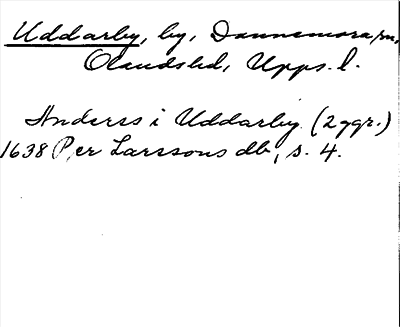 Uddarby, by, Dannemora sn,
Olandshd, Upps. l.
Anders i Uddarby (2 ggr.)
1638 Per Larssons db, s. 4.